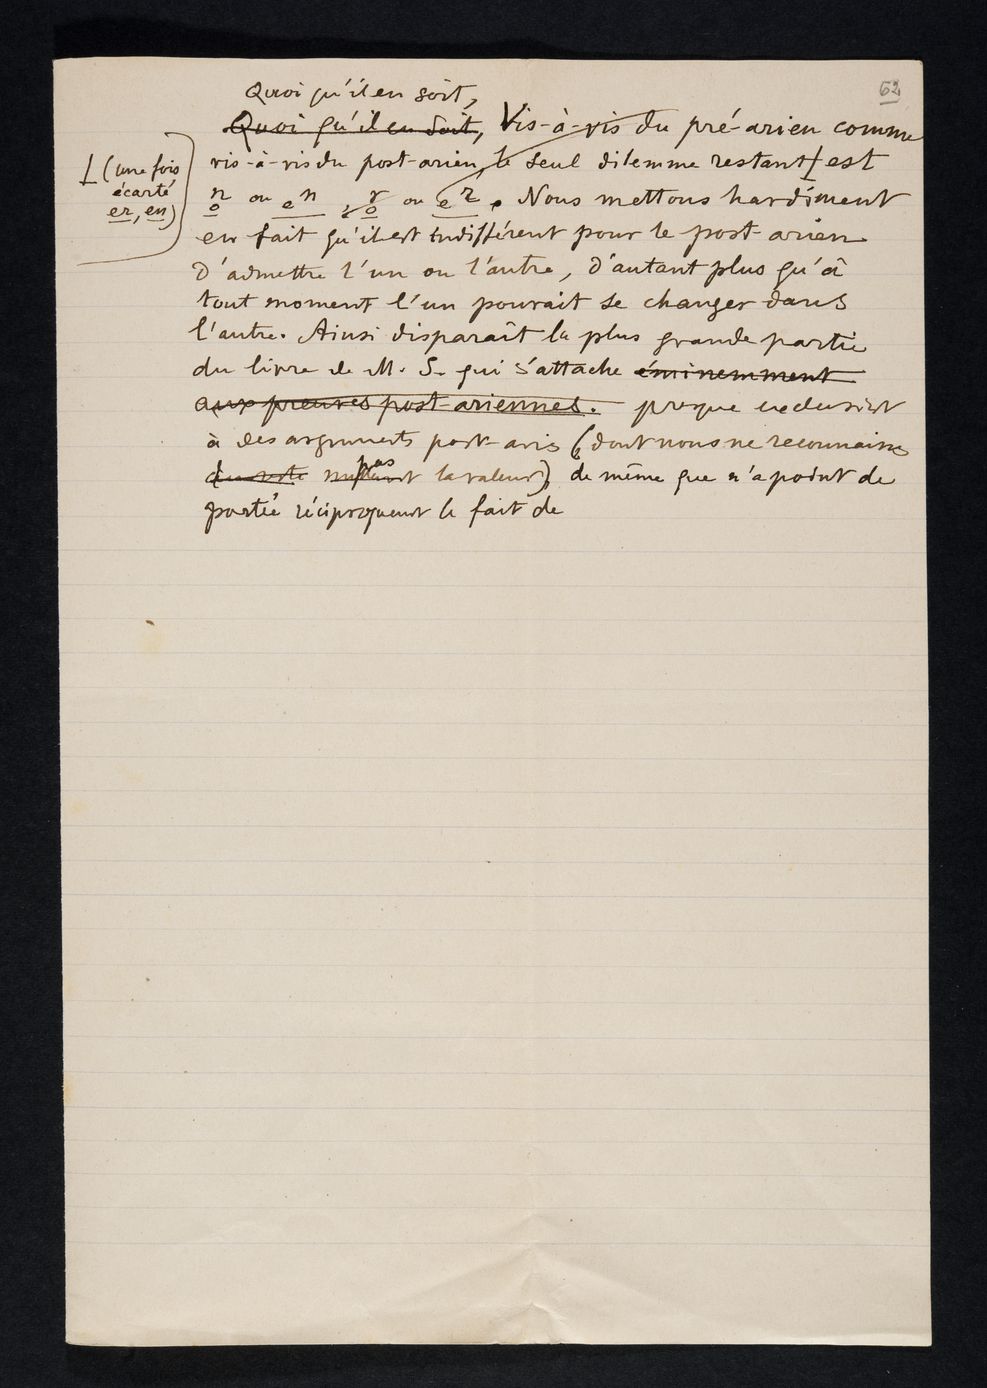 62
Quoi qu'il en soit,
Quoi qu'il en soit, Vis-à-vis du pré-arien comme
vis-à-vis du post-arien, le seul dilemme restant est
(une fois
écarté
er, en)
n̥ ou eⁿ, r̥ ou eʳ. Nous mettons hardiment
en fait qu'il est indifférent pour le post-arien
d'admettre l'un ou l'autre, d'autant plus qu'à
tout moment l'un pourait se changer dans
l'autre. Ainsi disparaît la plus grande partie
du livre de M. S. qui s'attache éminemment
aux preuves post-ariennes. presque exclusivt
à des arguments post-ariens (dont nous ne reconnaissons
pas la valeur), de même que n'a point de
portée réciproquement le fait de